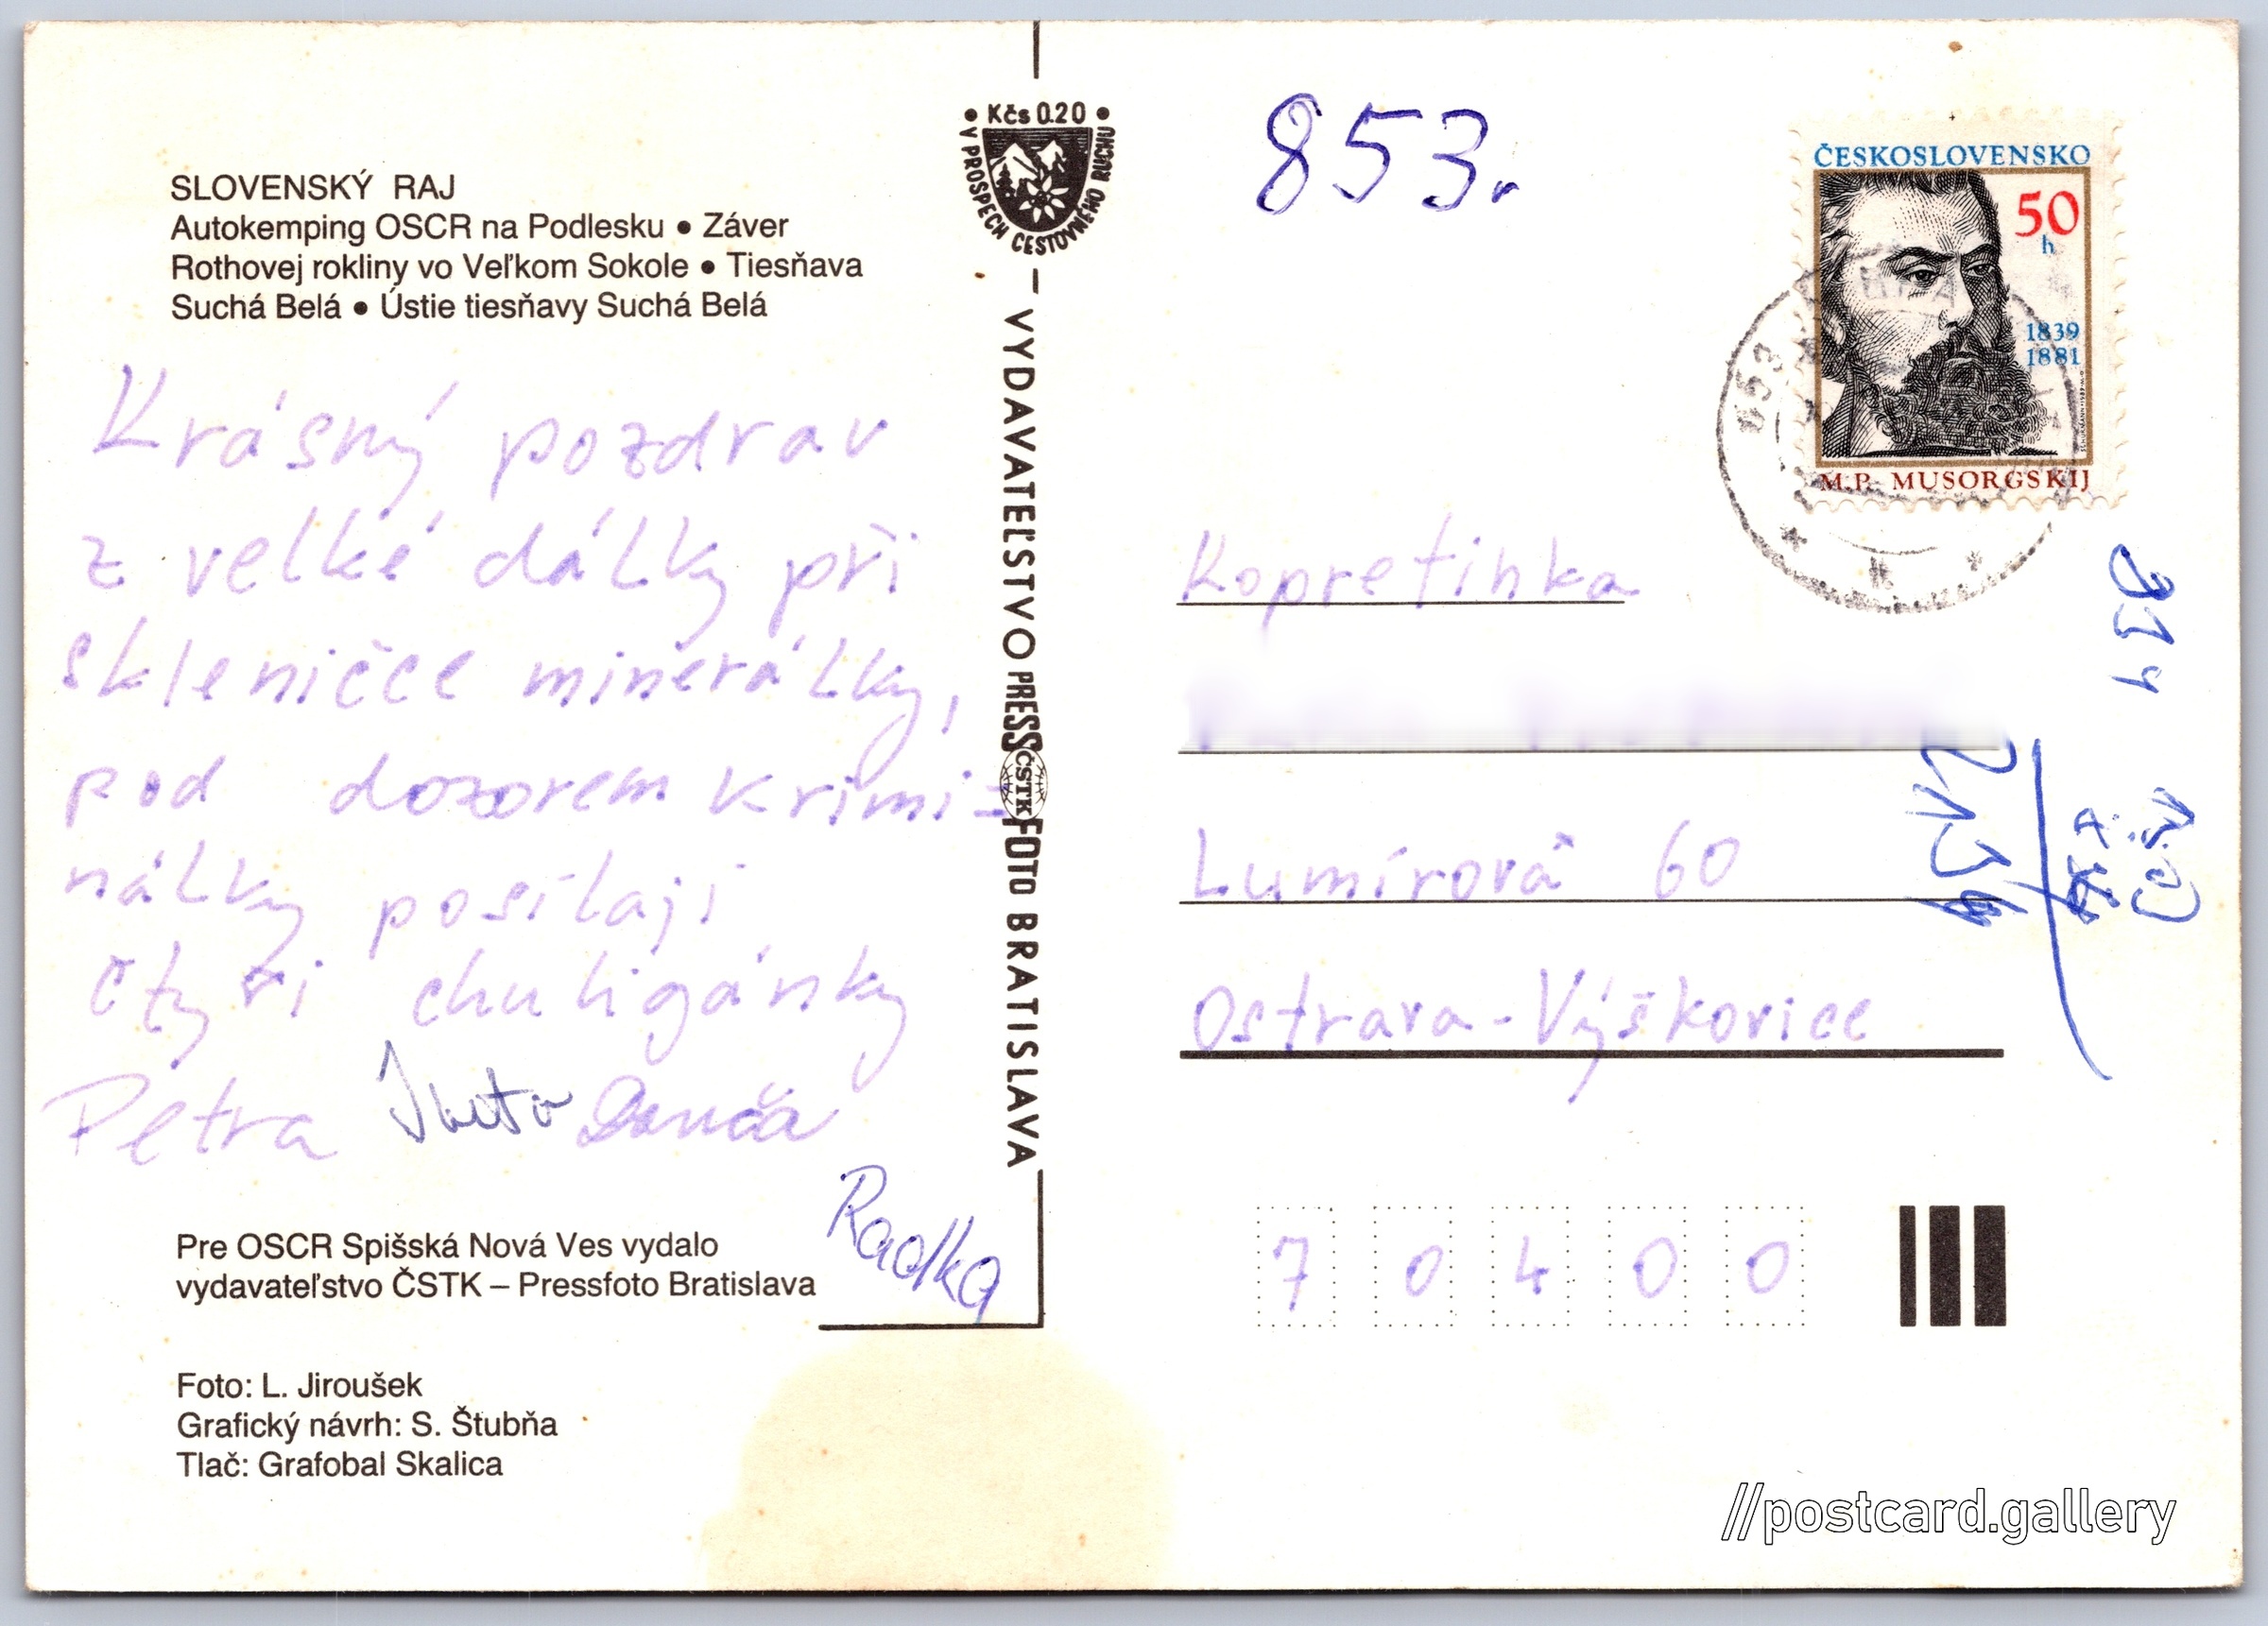 SLOVENSKÝ RAJ
Autokemping OSCR na Podlesku • Záver
Rothovej rokliny vo Veľkom Sokole • Tiesňava
Suchá Belá • Ústie tiesňavy Suchá Belá
Krásný pozdrav
z velké dálky při
skleničce minerálky,
pod dozorem krimi=
nálky posílají
čtyři chuligánky
Petra Iveta Danča
Radka
Pre OSCR Spišská Nová Ves vydalo
vydavateľstvo ČSTK – Pressfoto Bratislava
Foto: L. Jiroušek
Grafický návrh: S. Štubňa
Tlač: Grafobal Skalica
• Kčs 0.20 •
V PROSPECH CESTOVNÉHO RUCHU
VYDAVATEĽSTVO PRESSFOTO BRATISLAVA
ČSTK
853.
ČESKOSLOVENSKO
50
h
1839
1881
M.P. MUSORGSKIJ
053
Kopretinka
Lumírová 60
Ostrava-Výškovice
7 0 4 0 0
//postcard.gallery